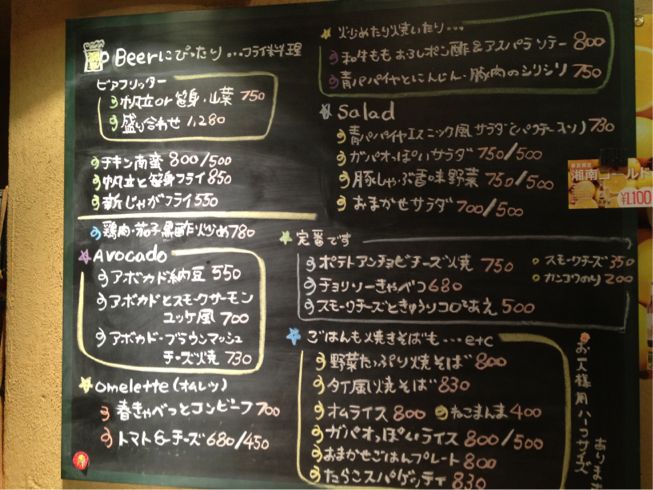 Beerにぴったり...フライ料理
ビアフリッター
帆立or筍身・山菜 750
盛り合わせ 1,280
チキン南蛮 800/500
帆立と筍身フライ 850
新じゃがフライ 550
鶏肉・茄子黒酢炒め 780
Avocado
アボカド納豆 550
アボカドとスモークサーモン
ユッケ風 700
アボカド・ブラウンマッシュ
チーズ焼 730
omelette(オムレツ)
春きゃべつとコンビーフ 700
トマト&チーズ 680/450
炒めたり焼いたり...
和牛もも おろしポン酢&アスパラソテー 800
青パパイヤとにんじん・豚肉のシリシリ 750
Salad
青パパイヤエスニック風サラダ(パクチーソース) 730
ガパオっぽいサラダ 750/500
豚しゃぶ香味野菜 750/500
おまかせサラダ 700/500
定番です
ポテトアンチョビチーズ焼 750
スモークチーズ 350
チョリソーきゃべつ 680
カンコクのり 200
スモークチーズときゅうりコロコロあえ 500
ごはんも焼きそばも...etc
野菜たっぷり焼そば 800
タイ風焼そば 830
オムライス 800 ねこまんま 400
ガパオっぽいライス 800/500
おまかせごはんプレート 800
たらこスパゲッティ 830
お一人様用ハーフサイズ
あります
湘南ゴールド
¥1,100